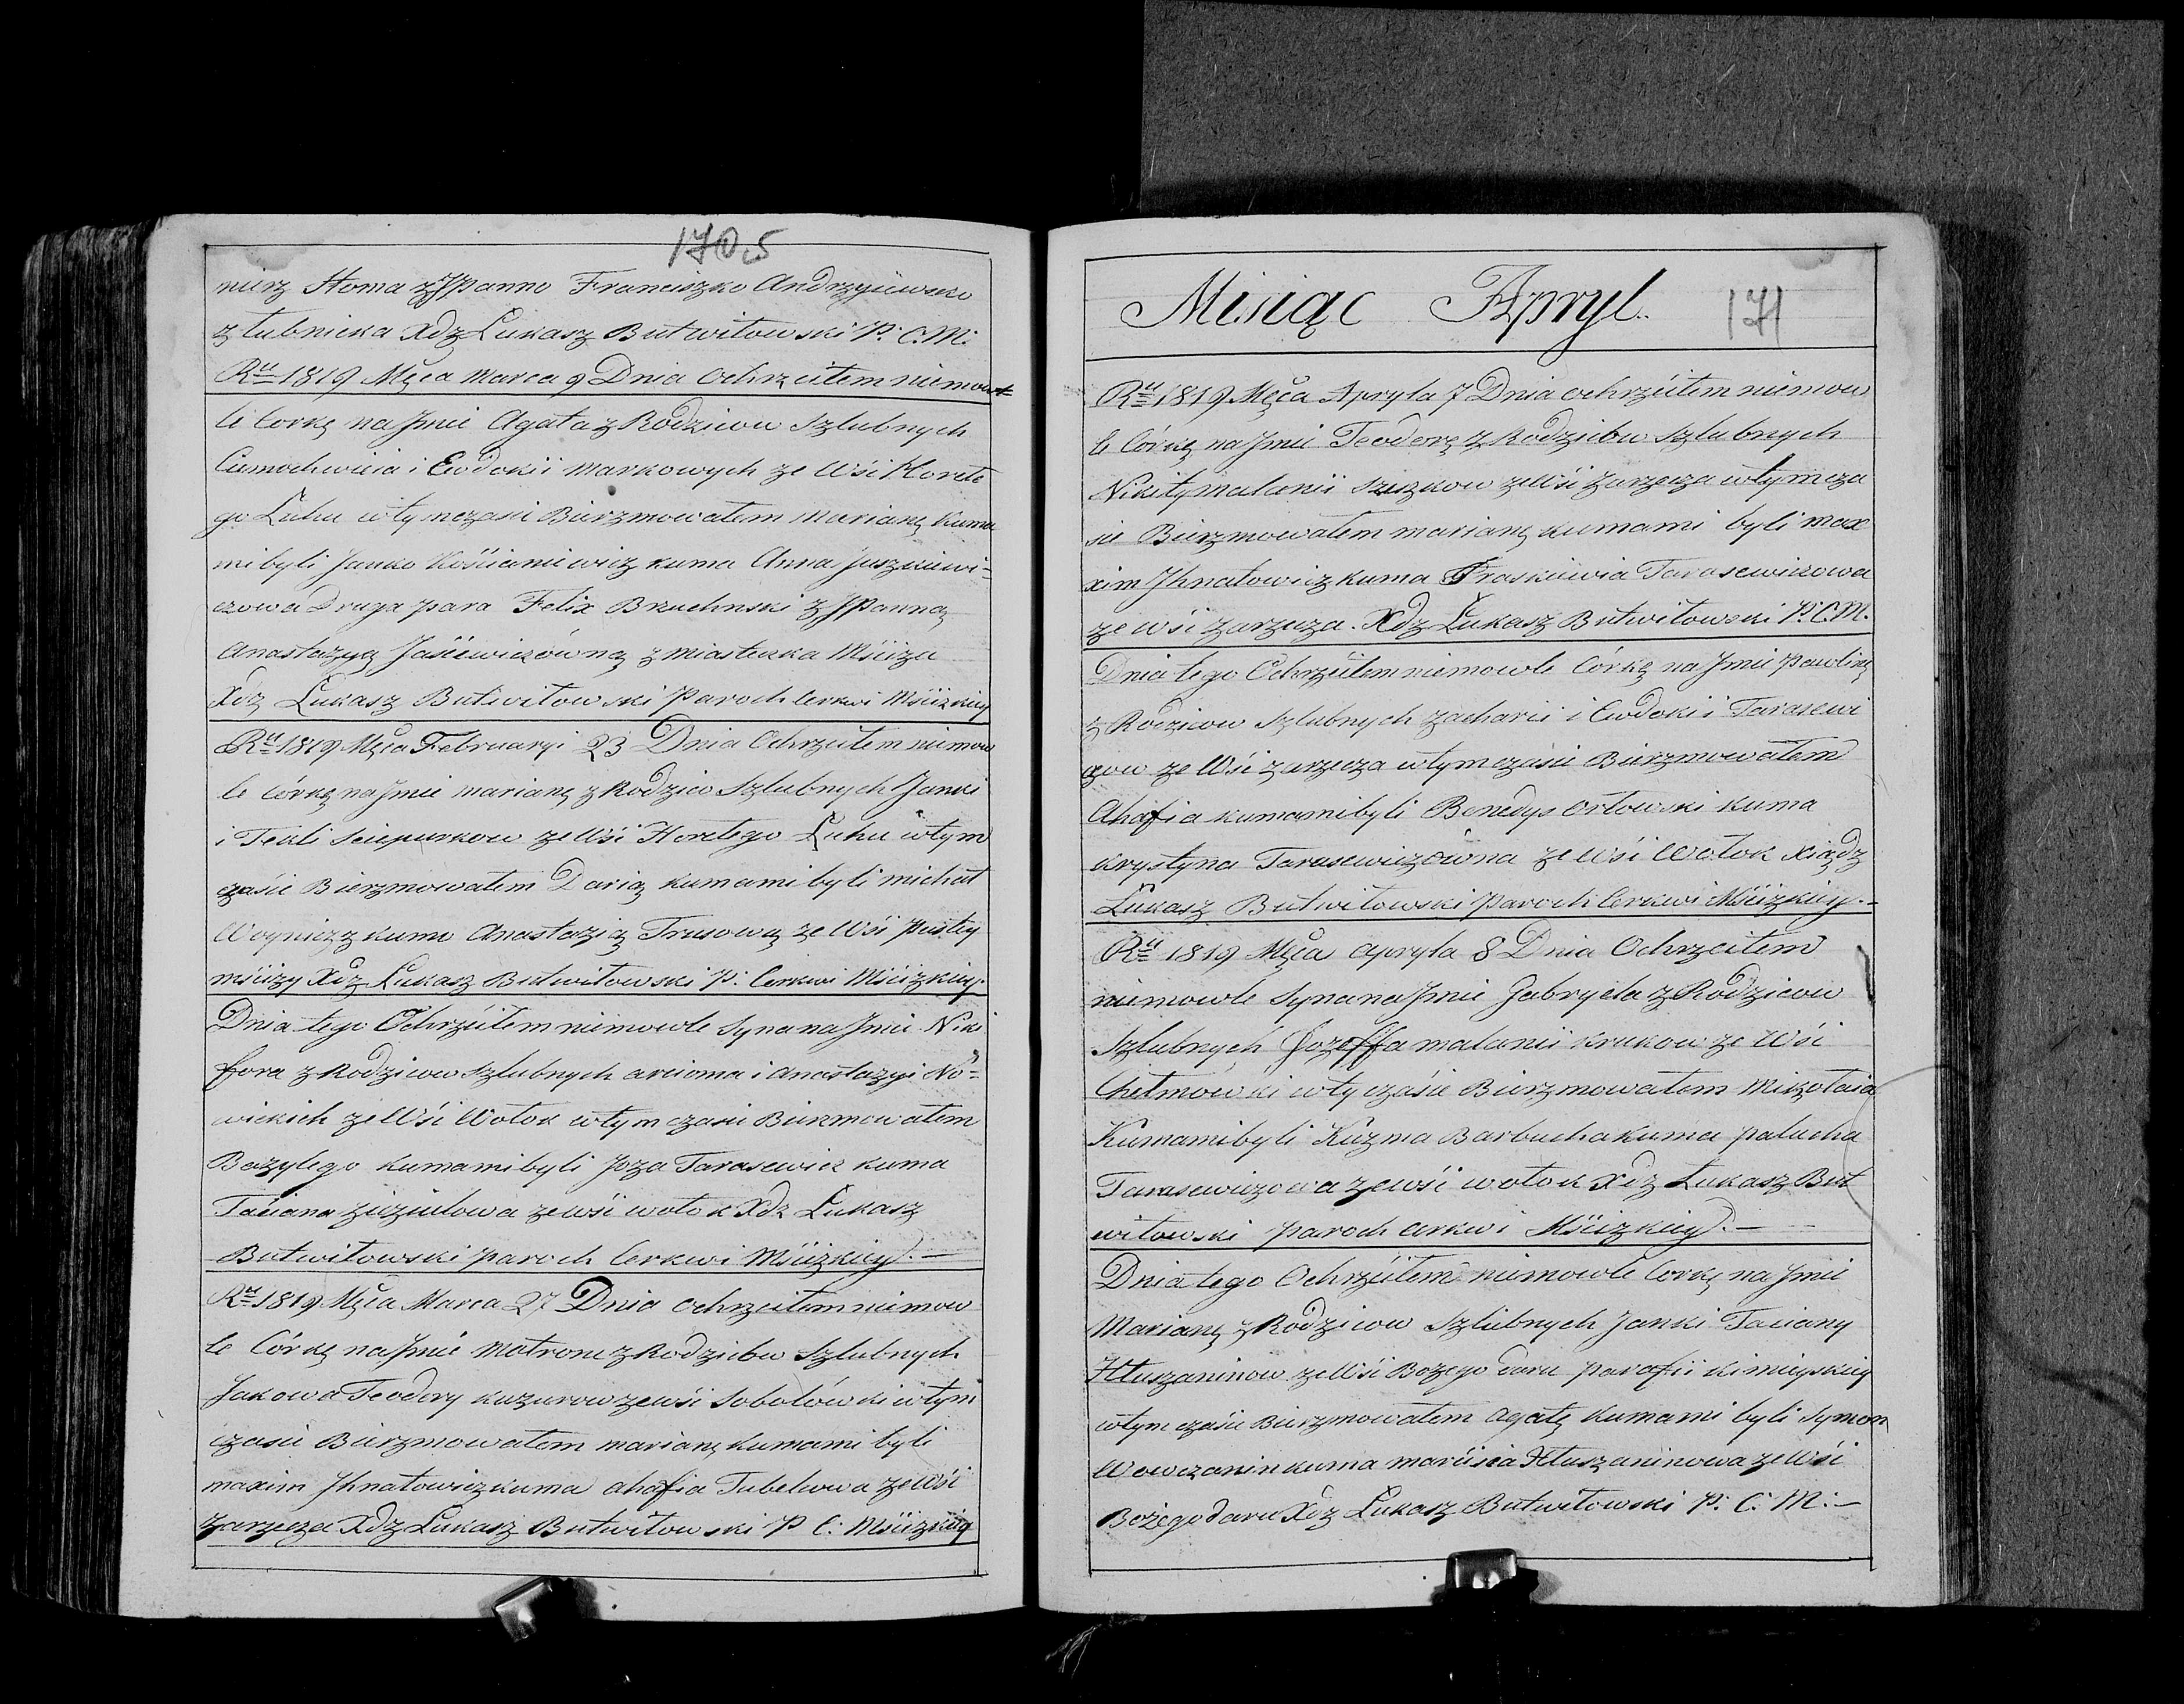 170,5
nierz Homa z JPanno Franciszko Andrzyiewsko
z Łubnicka Xdz Łukasz Butwiłowski P. C. M.
Ru 1819 Męca Marca 9 Dnia Ochrzciłem niemow
le Corkę na Jmie Agata z Rodzicow Szlubnych
i Eudokii Markowych ze Wśi Horełe
go Łuhu w tym czasie Bierzmowałem Marianę Kuma
mi byli Janko Kościaniewicz kuma Anna Juszkiewi-
czowa Druga para Felix Bruchnski z JPanną
Anastazyą Jaśiewiczówną z miasteczka Mściża
Xdz Łukasz Butwiłowski Paroch Cerkwi Mściżkiey
Ru 1819 Męca Februaryi 23 Dnia Ochrzciłem niemow
le Córkę na Jmie Marianę z Rodzico Szlubnych Janki
i Tekli Sciepurkow ze Wśi Horełego Łuhu w tym
czaśie Bierzmowałem Darią kumami byli Michał
Woynicz z kumo Anastazią Trusową ze Wśi Pustey
Mściży Xdz Łukasz Butwiłowski P. Cerkwi Mściżkiey.
Dnia tego Ochrzciłem niemowle Syna na Jmie Niki
fora z Rodzicow Szlubnych Arcioma i Anastazyi No-
wickich ze Wśi Wołok w tym czasie Bierzmowałem
Bazylego kumami byli Joza Tarasewicz kuma
Taciana Ziuziulowa ze wśi wołok Xdz Łukasz
Butwiłowski paroch Cerkwi Mściżkiey.—
Ru 1819 Męca Marca 27 Dnia ochrzciłem niemow
le Córkę na Jmie Motrone z Rodzicow Szlubnych
Jakowa Teodory kazurow ze wśi Sobołówki w tym
czasie Bierzmowałem marianę kumami byli
maxim Jhnatowicz kuma ahafia Tubelewa ze Wśi
Zarzecza Xdz Łukasz Butwiłowski P C: Mściżkiey
Misiąc Apryl. 171
Ru 1819 Męca Apryla 7 Dnia ochrzciłem niemow
le Córkę na Jmie Teodorę z Rodzicow Szlubnych
Nikity Malanii Szyszkow ze Wśi Zarzecza w tym cza
sie Bierzmowałem marianę kumami byli Max
xim Jhnatowicz kuma Praskiewia Tarasewiczowa
ze wśi Zarzecza. Xdz Łukasz Butwiłowski P: C. M.
Dnia tego Ochrzciłem niemowle Córkę na Jmie Pawlinę
z Rodzicow Szlubnych Zacharii i Ewdokii Tarasewi
czow ze Wśi Zarzecza w tym czasie Bierzmowałem
Ahafia kumami byli Benedys Orłowski kuma
Krystyna Tarasewiczówna ze wśi Wołok Xiądz
Łukasz Butwiłowski Paroch Cerkwi Mściżkiey.—
Ru 1819 Męca Apryla 8 Dnia Ochrzciłem
niemowle Syna na Jmie Gabryela z Rodzicow
Szlubnych Jozeffa malanii krukow ze Wśi
Chełmowki w ty czaśie Bierzmowałem Mikołaia
Kumami byli Kuzma Barbucha kuma Palucha
Tarasewiczowa ze wśi wołok Xdz Łukasz But
wiłowski paroch cerkwi Mściżkiey.—
Dnia tego Ochrzciłem niemowle Corkę na Jmie
Marianę z Rodzicow Szlubnych Janki Taciany
Hłuszaninow ze Wśi Bożego daru parafii kimieyskiey
w tym czaśie Bierzmowałem agatę kumami byli Symon
Wowczanin kuma marćisia Hłuszaninowa ze Wśi
Bożego daru Xdz Łukasz Butwiłowski P: C: M:—